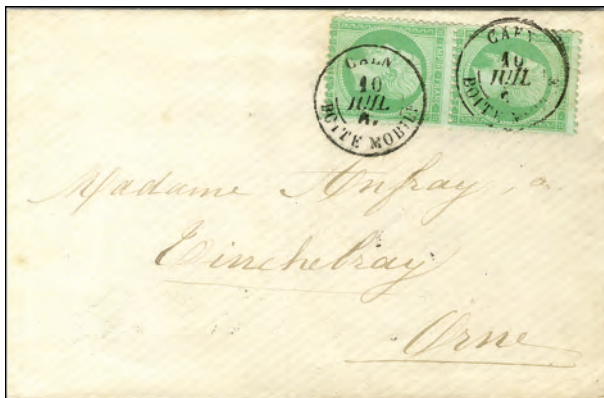 CAEN
10
JUIL
BOITE MOBILE
CAEN
10
JUIL
BOITE
Madame Anfray, a
Tinchebray
Orne